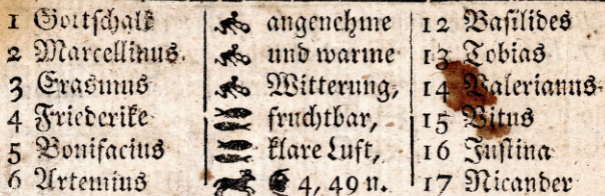 1 Gottschalk angenehme 12 Basilides
2 Marcellinus. und warme 13 Tobias
3 Erasmus Witterung, 14 Valerianus
4 Friederike fruchtbar, 15 Vitus
5 Bonifacius klare Luft, 16 Justina
6 Artemius ☾ 4, 49 u. 17 Nicander